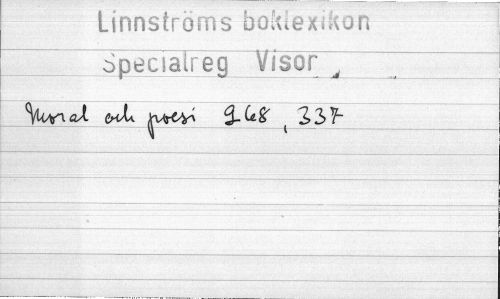 Linnströms boklexikon
Specialreg Visor
Moral och poesi 968, 337